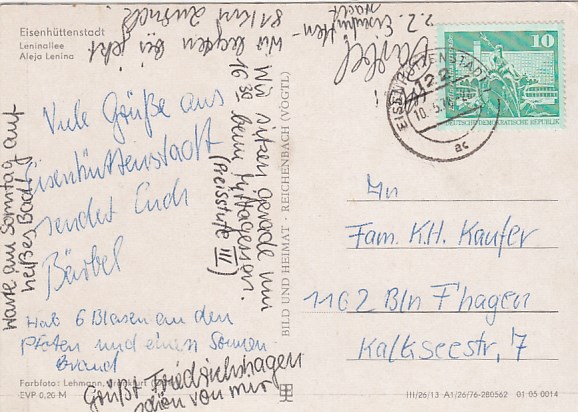 Eisenhüttenstadt
Leninallee
Aleja Lenina
Viele Grüße aus
Eisenhüttenstadt
sendet Euch
Bärbel
Hab 6 Blasen an den
Pfoten und einen Sonnen-
brand
Farbfoto: Lehmann, Frankfurt
EVP 0,20 M
Warte am Sonntag auf
heißes Bad!
Wir sitzen gerade um
16 30 beim Mittagessen.
(Preisstufe III)
Wir legten bis jetzt
81 km zurück!
z.Z. Eisenhütten-
stadt
Grüßt Friedrichshagen
schön von mir
BILD UND HEIMAT · REICHENBACH (VOGTL)
10
DEUTSCHE DEMOKRATISCHE REPUBLIK
EISENHÜTTENSTADT
122
ac
An
Fam. K.H. Kaufer
1162 Bln F'hagen
Kalkseestr. 7
III/26/13 A1/26/76-280562 01 05 0014